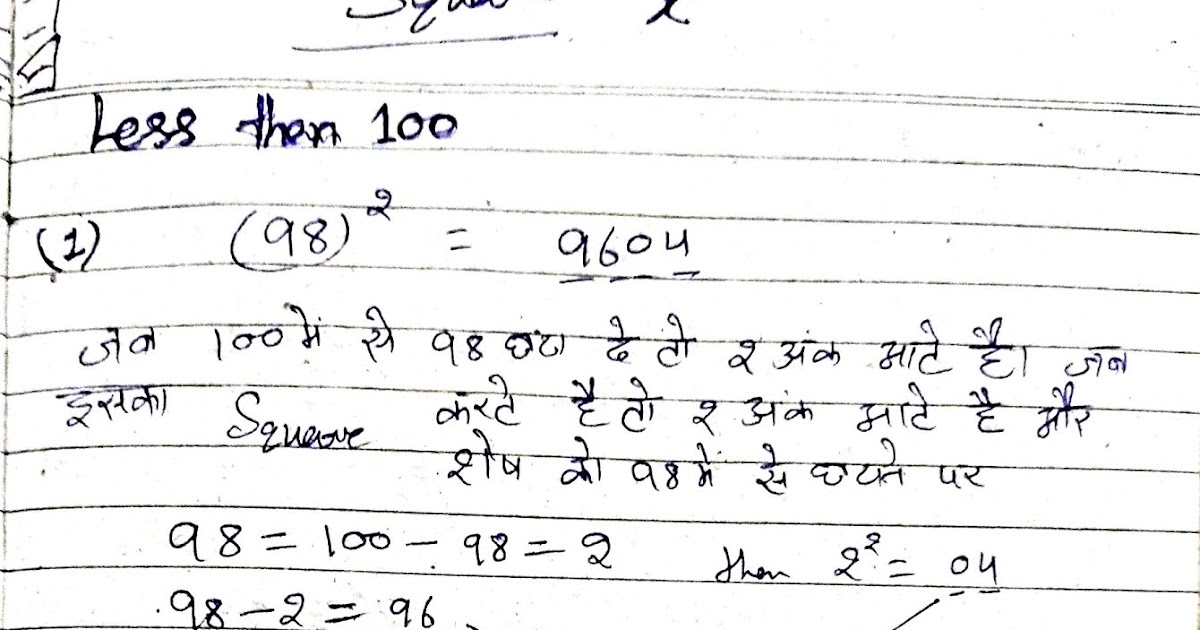 Less than 100
(1) (98)² = 9604
जब 100 में से 98 घटा दे तो 2 अंक आटे है। जब
इसका Square करटे है तो 2 अंक आटे है और
शेष को 98 में से घटाने पर
98 = 100 - 98 = 2 then 2² = 04
98 - 2 = 96